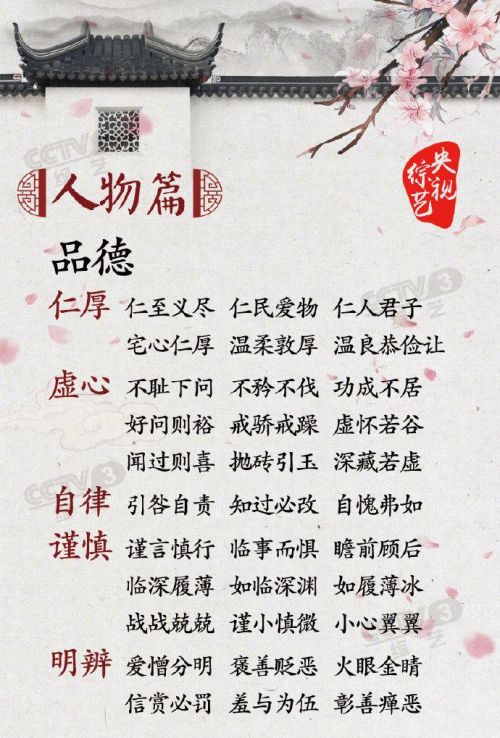 人物篇
央视
综艺
品德
仁厚 仁至义尽 仁民爱物 仁人君子
宅心仁厚 温柔敦厚 温良恭俭让
虚心 不耻下问 不矜不伐 功成不居
好问则裕 戒骄戒躁 虚怀若谷
闻过则喜 抛砖引玉 深藏若虚
自律 引咎自责 知过必改 自愧弗如
谨慎 谨言慎行 临事而惧 瞻前顾后
临深履薄 如临深渊 如履薄冰
战战兢兢 谨小慎微 小心翼翼
明辨 爱憎分明 褒善贬恶 火眼金睛
信赏必罚 羞与为伍 彰善瘅恶
CCTV 3 综艺
CCTV 3
CCTV 3
CCTV 3